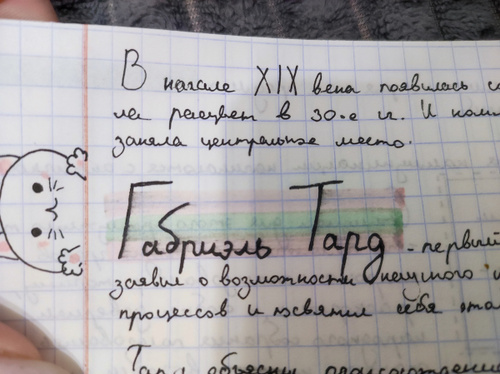 В начале XIX века появилась
расцвет в 30-е гг. И
заняла центральное место.
Габриэль Тард - первый
заявил о возможности научного
процессов и посвятил себя